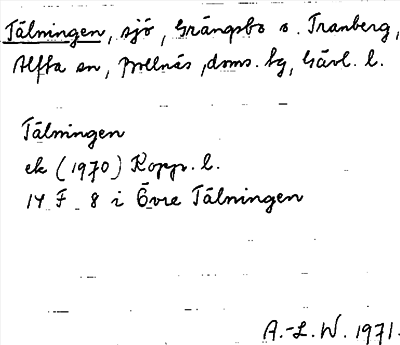 Tälningen, sjö, Grängsbo o. Tranberg,
Alfta sn, Bollnäs doms. tg, Gävl. l.
Tälningen
ek (1970) Kopp. l.
14 F 8 i Övre Tälningen
A.-L. W. 1971.